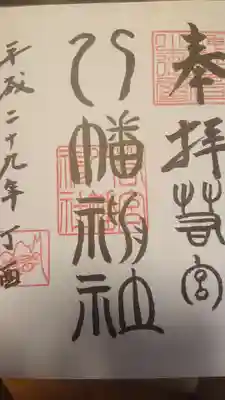 奉拝若宮
八幡神社
平成二十九年丁酉